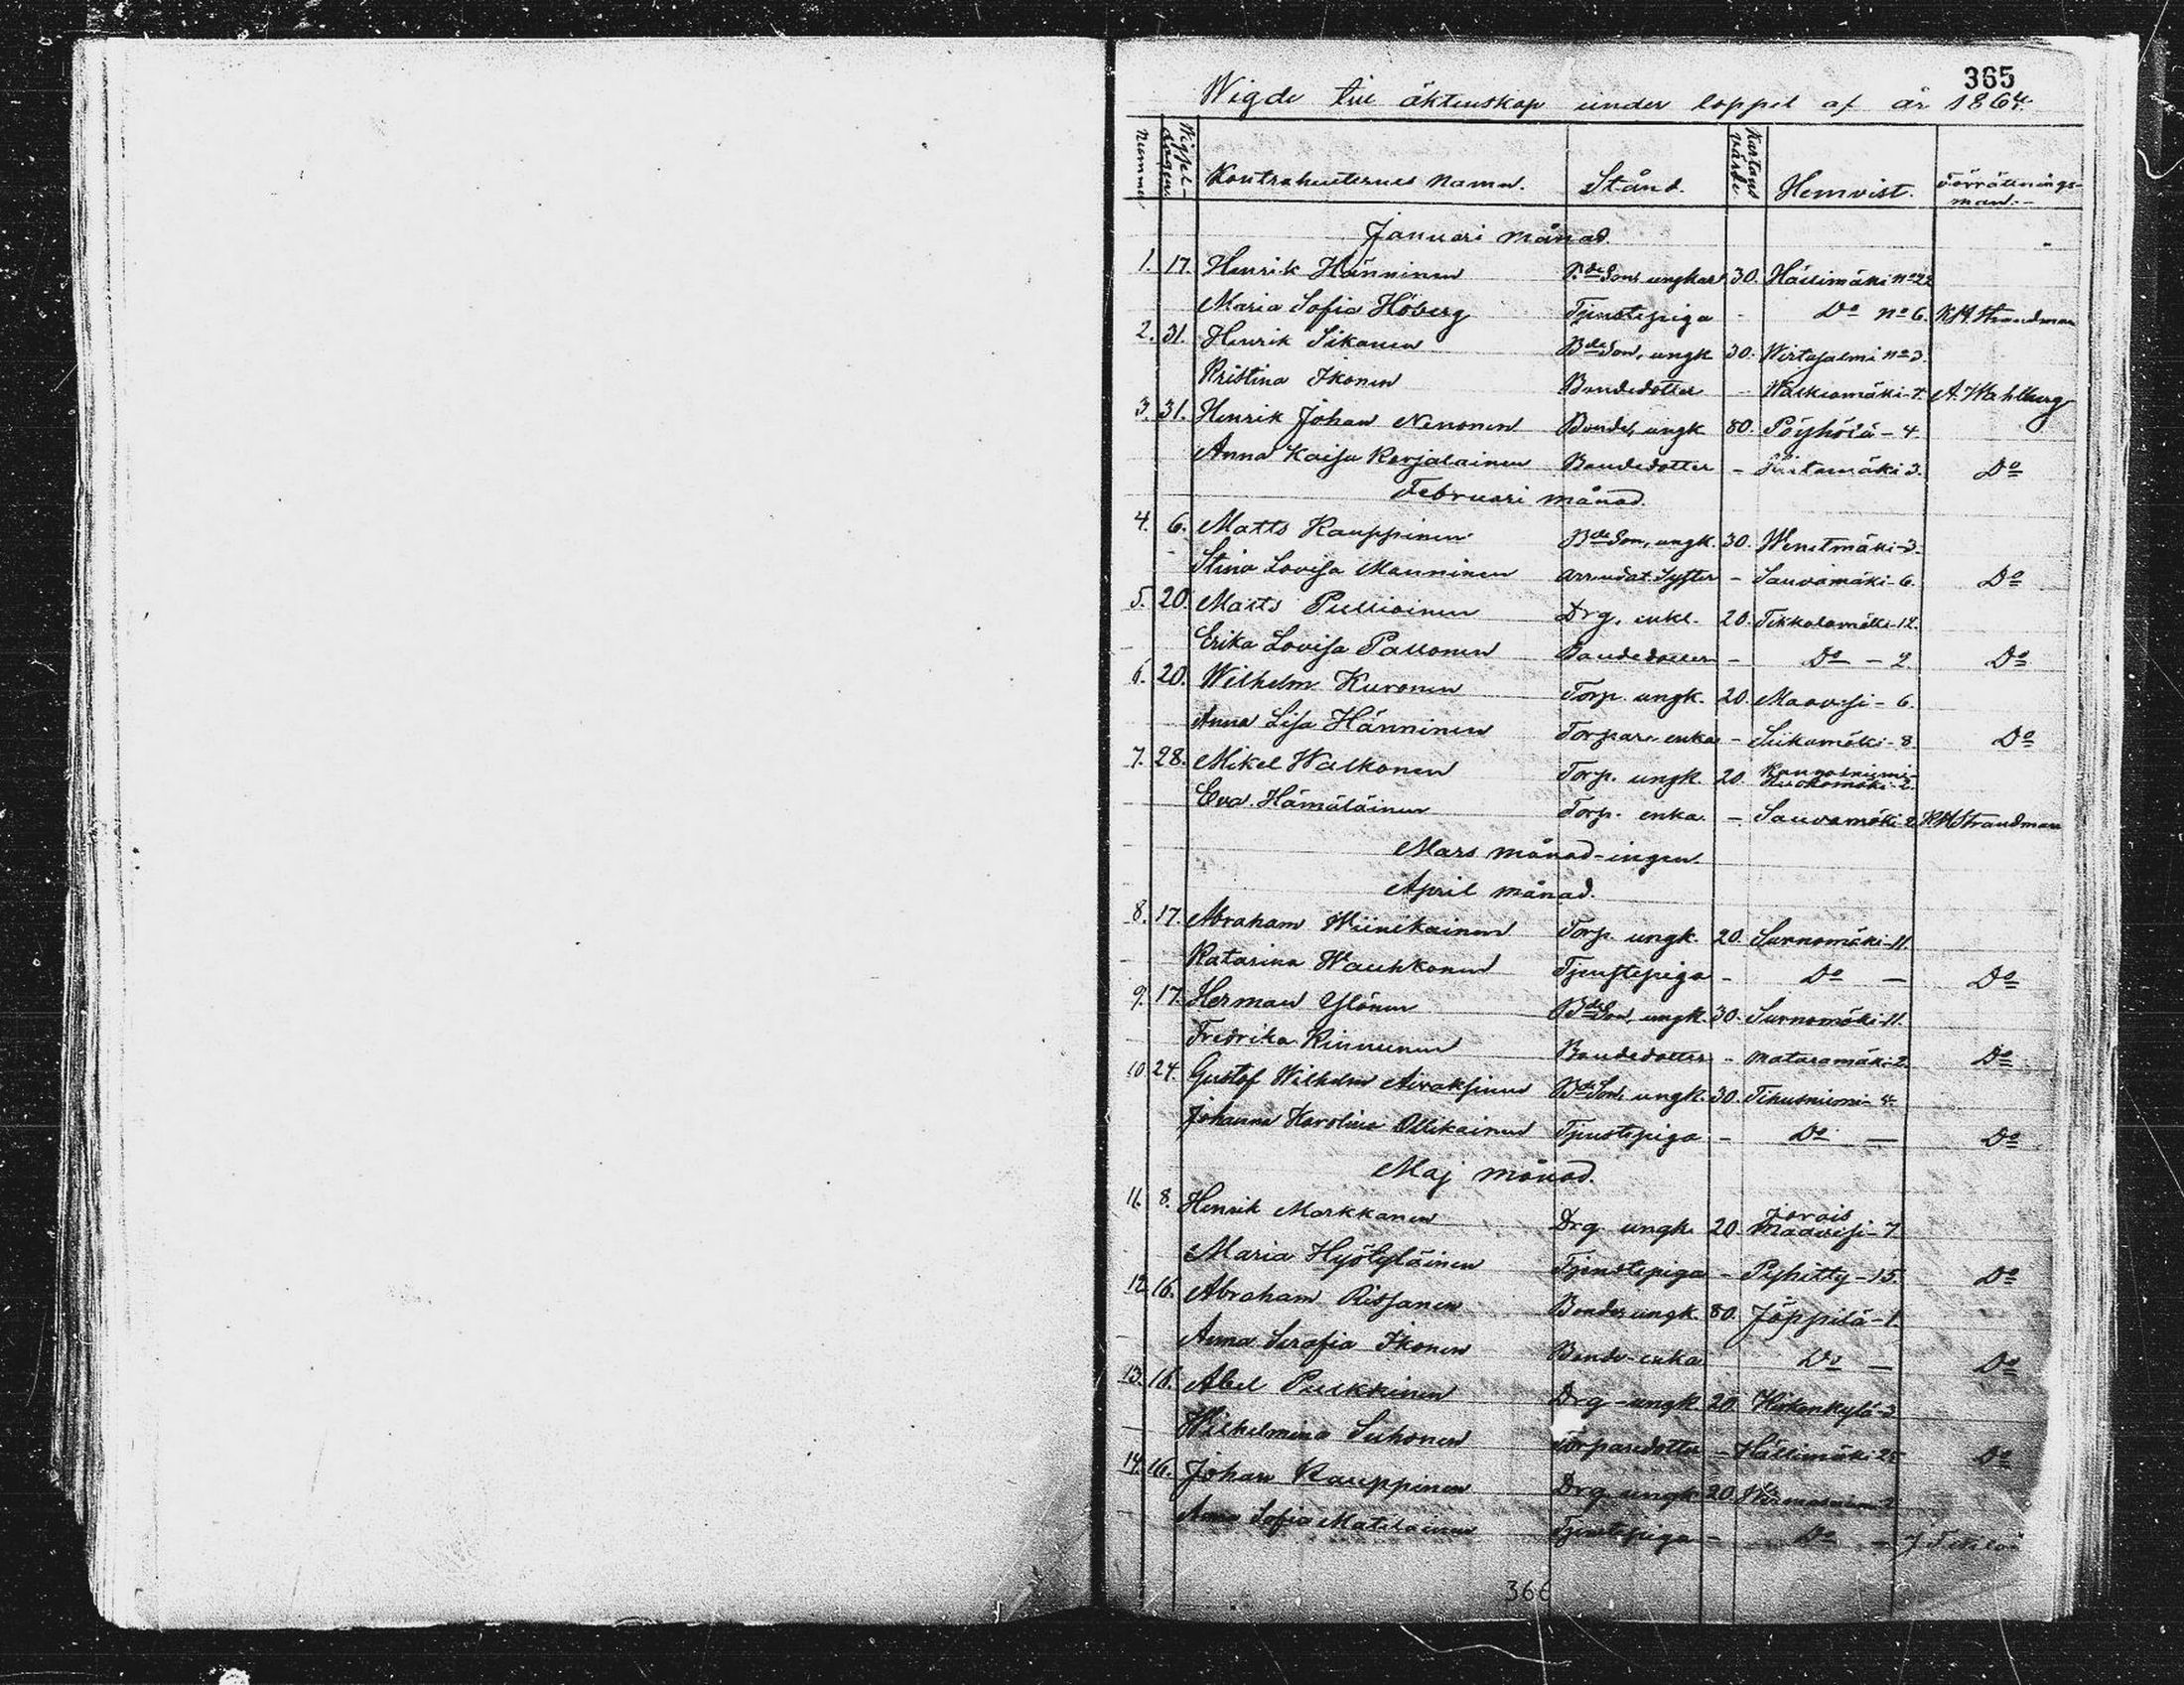 365
Wigde till äktenskap under loppet af år 1864.
Nummer Wigsel-dagen Kontrahenternes namn. Stånd. Kristens värde Hemvist. Förrättnings-man.
Januari månad.
1. 17. Henrik Hänninen B.de Son ungkarl 30. Hällimäki No 22
Maria Sofia Höberg Tjenstepiga - Do No 6. K H Strandman
2. 31. Henrik Sikanen Bde Son, ungk 30. Wirtasalmi No 3.
Kristina Ikonen Bondedotter - Walkiamäki-7. A. Wahlberg
3. 31. Henrik Johan Nenonen Bonde, ungk 80. Pöyhölä-4.
Anna Kaisa Karjalainen Bondedotter - 3. Do
Februari månad.
4. 6. Matts Kauppinen Bde Son, ungk. 30. Wenetmäki-3.
Stina Lovisa Manninen arrendat. Syster - Sauvamäki-6. Do
5. 20. Matts Pulliainen Drg. enkl. 20. Tikkalamäki-12.
Erika Lovisa Pallonen Bondedotter - Do - 2. Do
6. 20. Wilhelm Kuronen Torp. ungk. 20. Maavesi-6.
Anna Lisa Hänninen Torpare enka - Siikamäki-8. Do
7. 28. Mikel Walkonen Torp. ungk. 20. Kangasniemi-
Ruokomäki-2.
Eva Hämäläinen Torp. enka. - Sauvamäki-2 K H Strandman
Mars månad-ingen.
April månad.
8. 17. Abraham Wiinikainen Torp. ungk. 20. Surnomäki-11.
Katarina Wauhkonen Tjenstepiga - Do - Do
9. 17. Herman Ylönen Bde Son, ungk. 30. Surnomäki-11.
Fredrika Kinnunen Bondedotter - Mataramäki-2. Do
10 24. Gustaf Wilhelm Airaksinen Bde Son, ungk. 30. Tihusniemi-4.
Johanna Karolina Ollikainen Tjenstepiga - Do - Do
Maj månad.
11. 8. Henrik Markkanen Drg ungk. 20. Jorois
Maavesi-7.
Maria Hyötyläinen Tjenstepiga - Pyhitty-15. Do
12. 16. Abraham Rissanen Bonde, ungk. 80. Jäppilä-1.
Anna Serafia Ikonen Bonde-enka Do - Do
13. 16. Abel Pulkkinen Drg-ungk. 20. Häkenkylä-3
Wilhelmina Suhonen Torparedotter - Hällimäki 25 Do
14. 16. Johan Kauppinen Drg ungk 20
Anna Sofia Matilainen Tjenstepiga - Do -
366